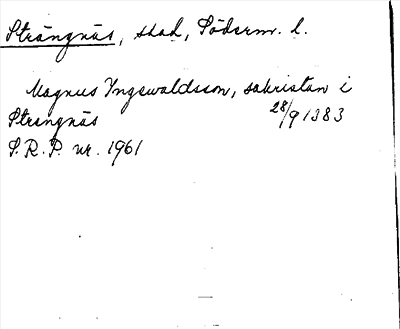 Strängnäs, stad, Söderm. l.
Magnus Yngewaldsson, sakristan i
Strengnäs 28/9 1383
S.R.P. nr. 1961